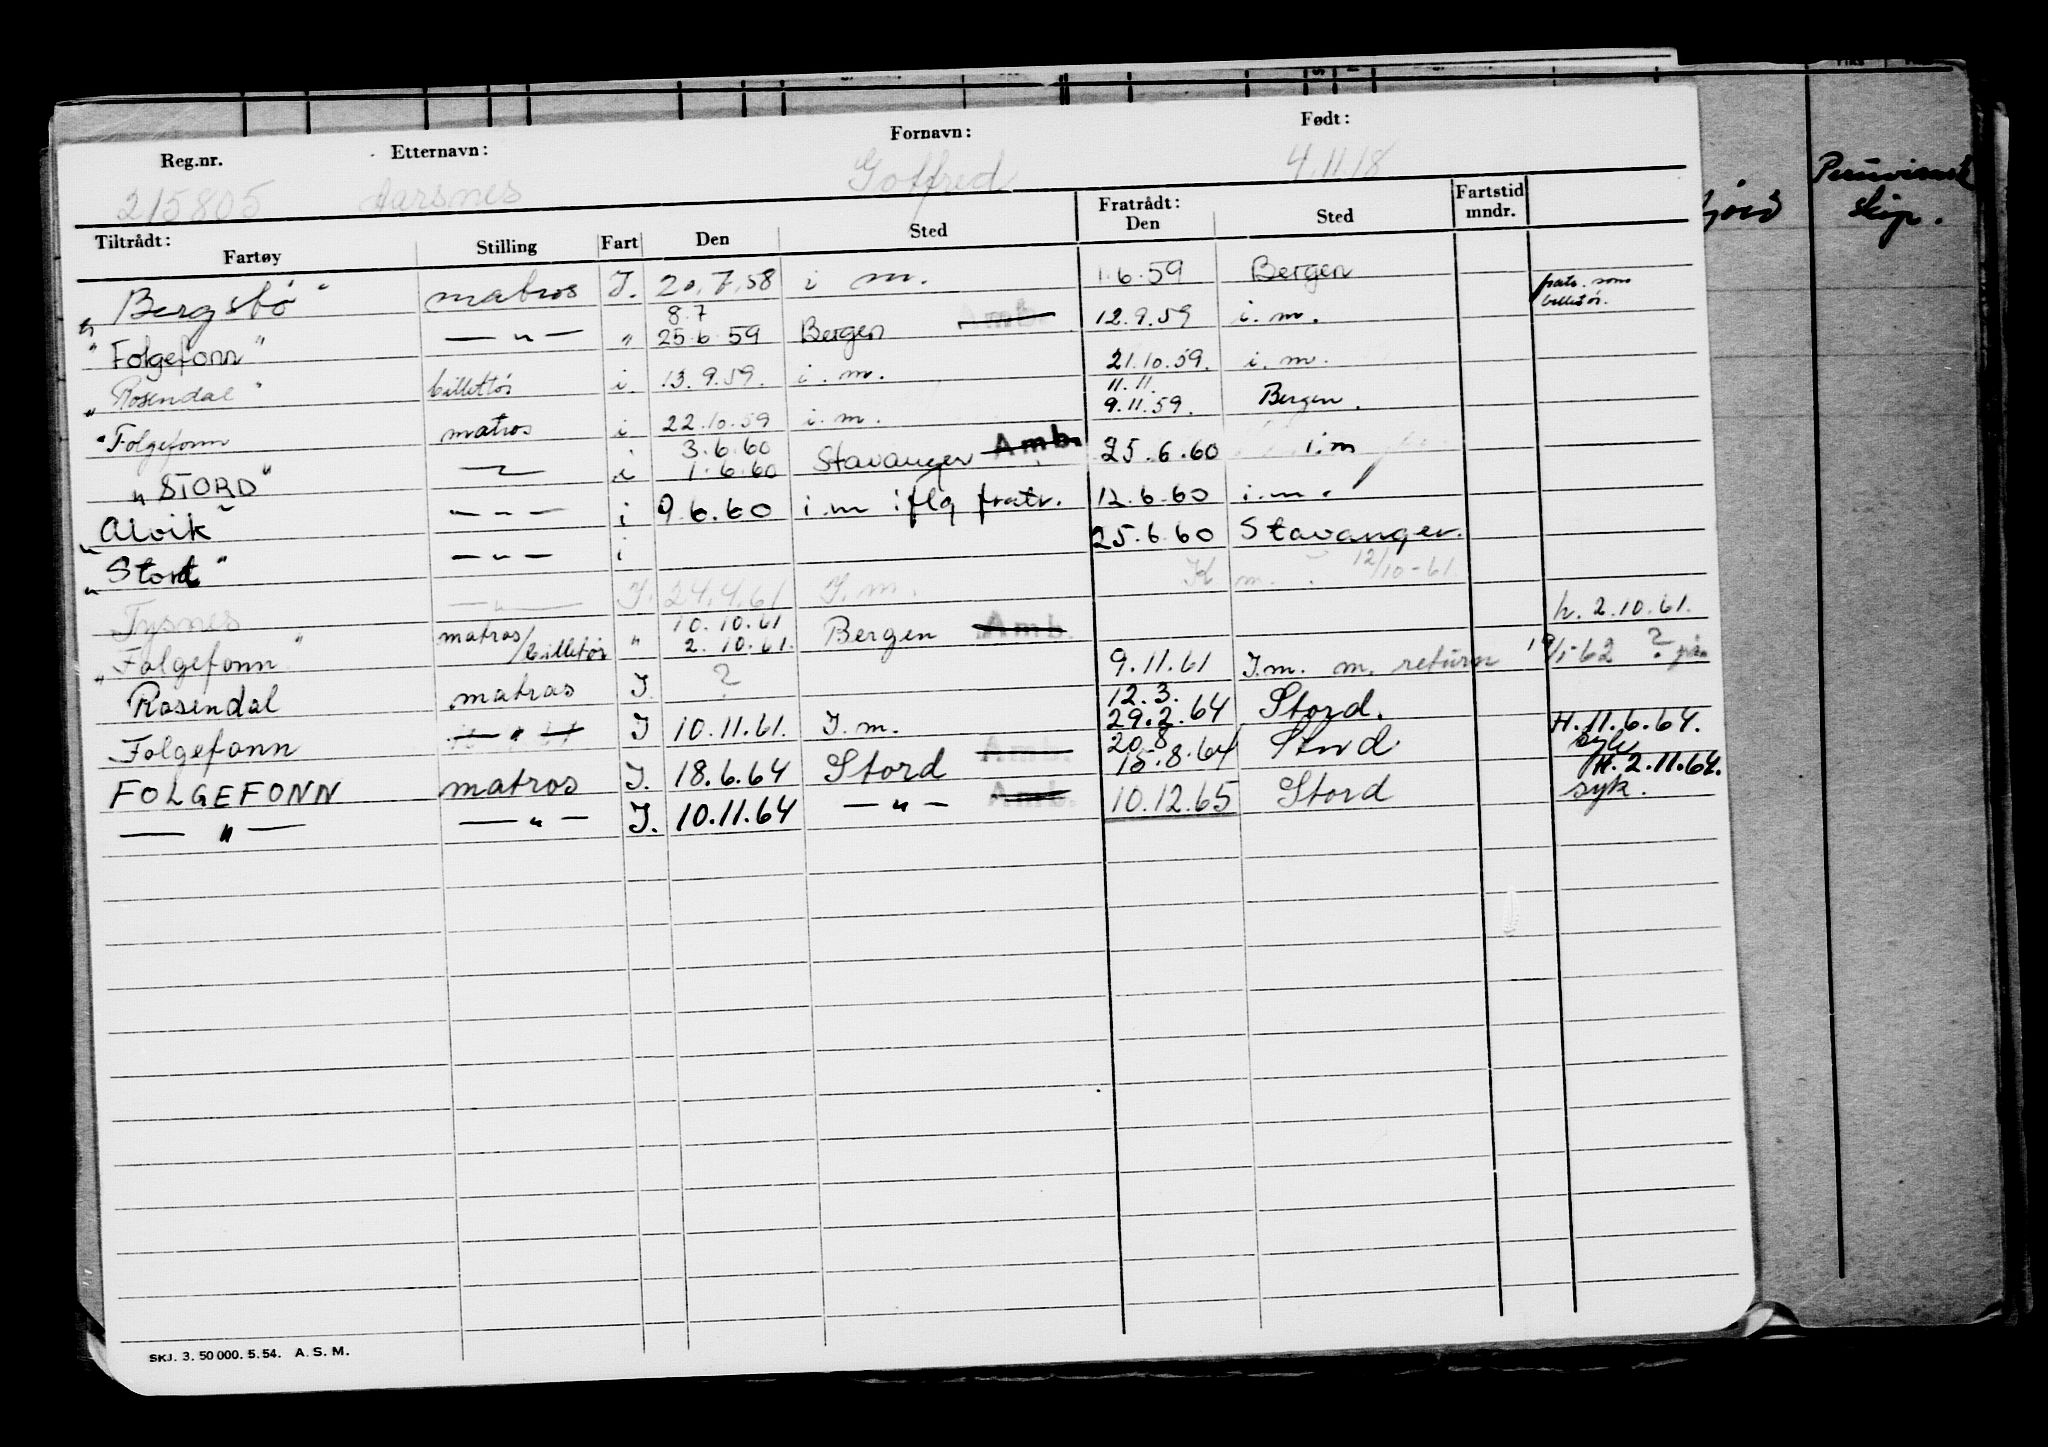 Reg.nr. Etternavn: Fornavn: Født:
215805 Aarsnes Goffred 4.11.18
Tiltrådt: Fratrådt: Fartstid
Fartøy Stilling Fart Den Sted Den Sted mndr.
"Bergsbø" matros I. 20.7.58 i m. 1.6.59 Bergen
8.7
"Folgefonn" — " — " 25.6.59 Bergen Amb. 12.9.59 i.m. fratr. som billettør.
"Rosendal" billettør i 13.9.59. i.m. 21.10.59. i.m.
11.11.
"Folgefonn matros i 22.10.59 i.m. 9.11.59. Bergen.
3.6.60
"STORD" — " — i 1.6.60 Stavanger Amb. 25.6.60 i.m
"Alvik" — " — i 9.6.60 i.m iflg fratr. 12.6.60 i.m.
"Stord" — " — i 25.6.60 Stavanger.
Tysnes — " — I. 24.4.61 I.m. K m. 12/10-61
10.10.61
"Folgefonn" matros/billettør " 2.10.61. Bergen Amb. h. 2.10.61.
Rosendal matros I. ? 9.11.61 I.m. m. return 19/1-62 ?
12.3.
Folgefonn — " — I 10.11.61. I.m. 29.2.64 Stord.
20.8
FOLGEFONN matros I. 18.6.64 Stord Amb. 15.8.64 Stord H. 11.6.64. syk
— " — — " — I. 10.11.64 — " — Amb. 10.12.65 Stord H. 2.11.64. syk.
SKJ. 3. 50 000. 5. 54. A. S. M.
Peruviansk
skip.